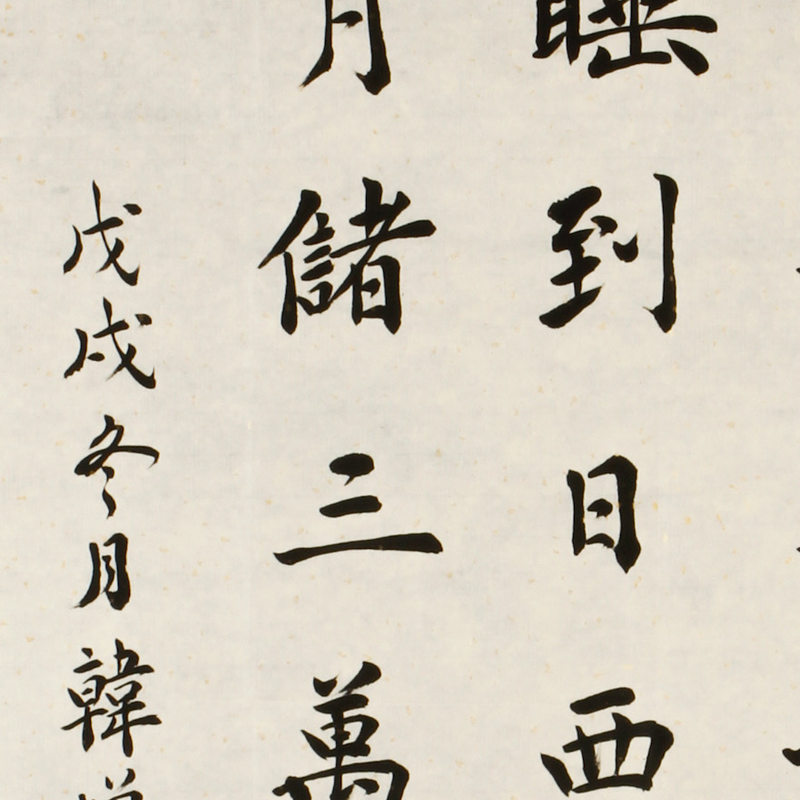 睡到日西
月儲三萬
戊戌冬月韓